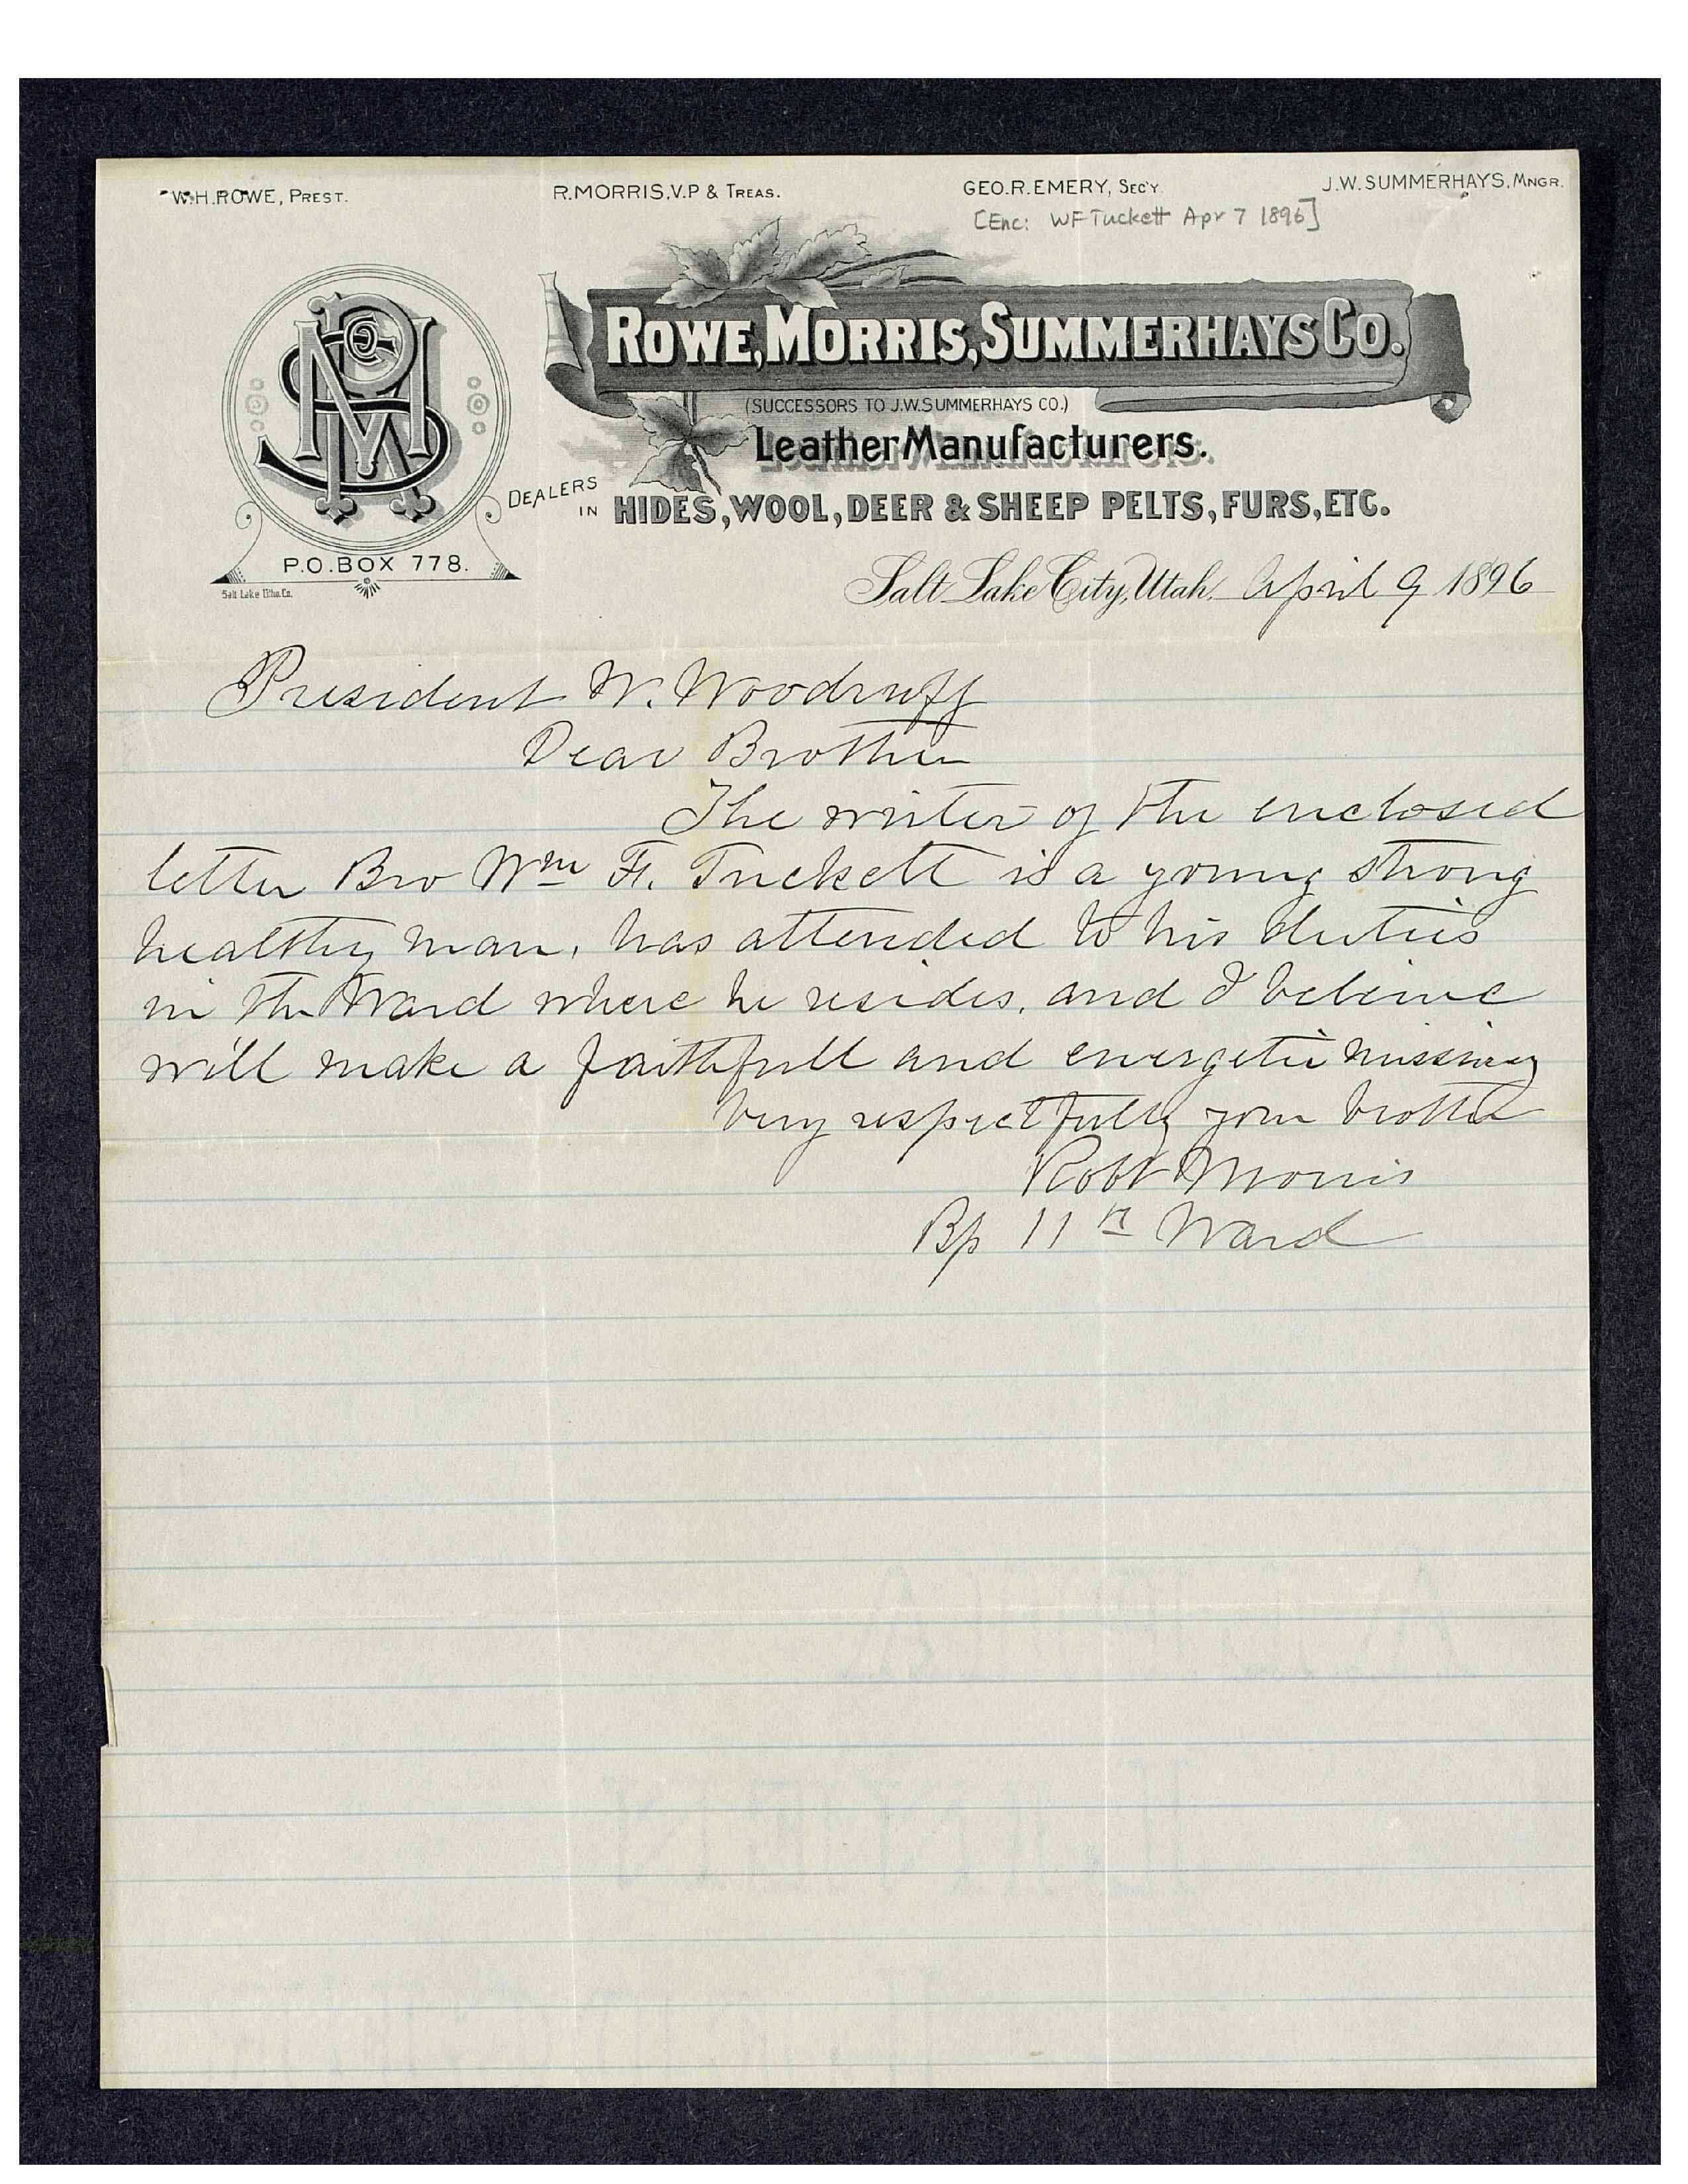 W.H. ROWE, PREST. R. MORRIS, V.P & TREAS. GEO. R. EMERY, SEC'Y. J.W. SUMMERHAYS, MNGR.
[Enc: WF Tuckett Apr 7 1896]
ROWE, MORRIS, SUMMERHAYS CO.
(SUCCESSORS TO J.W. SUMMERHAYS CO.)
Leather Manufacturers.
DEALERS IN HIDES, WOOL, DEER & SHEEP PELTS, FURS, ETC.
P.O. BOX 778.
Salt Lake Litho. Co.
Salt Lake City, Utah, April 9 1896
President W. Woodruff
Dear Brother
The writer of the enclosed
letter Bro Wm F. Tuckett is a young strong
healthy man, has attended to his duties
in the Ward where he resides, and I believe
will make a faithfull and energetic missionary
Very respectfully your brother
Robt Morris
Bp 11th Ward